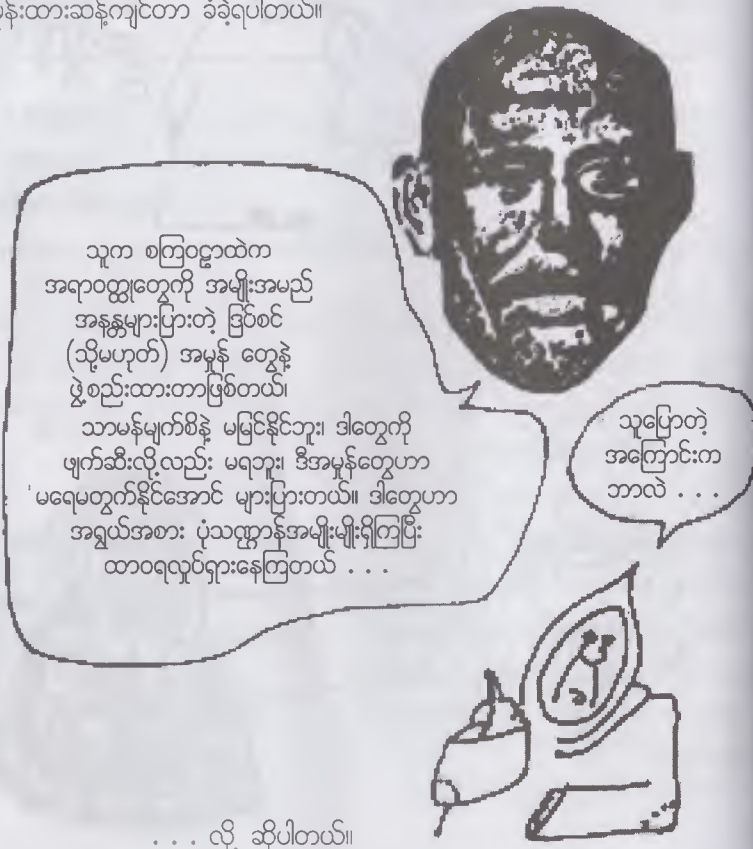 မုန်းထားဆန့်ကျင်တာ ခံခဲ့ရပါတယ်။
သူက စကြဝဠာထဲက
အရာဝတ္ထုတွေကို အမျိုးအမည်
အနန္တများပြားတဲ့ ဒြပ်စင်
(သို့မဟုတ်) အမှုန် တွေနဲ့
ဖွဲ့စည်းထားတာဖြစ်တယ်၊
သာမန်မျက်စိနဲ့ မမြင်နိုင်ဘူး၊ ဒါတွေကို
ဖျက်ဆီးလို့လည်း မရဘူး၊ ဒီအမှုန်တွေဟာ
မရေမတွက်နိုင်အောင် များပြားတယ်။ ဒါတွေဟာ
အရွယ်အစား ပုံသဏ္ဌာန်အမျိုးမျိုးရှိကြပြီး
ထာဝရလှုပ်ရှားနေကြတယ် . . .
သူပြောတဲ့
အကြောင်းက
ဘာလဲ . . .
. . . လို့ ဆိုပါတယ်။